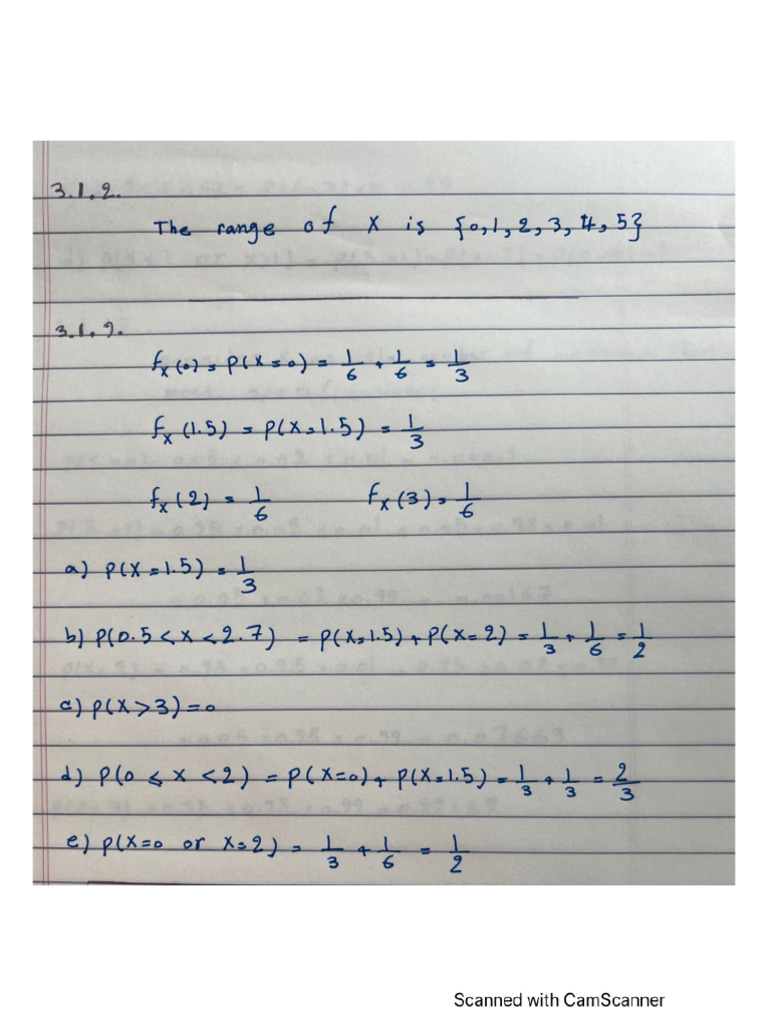 3.1.2.
The range of X is {0,1,2,3,4,5}
3.1.9.
f_X(0) = P(X=0) = 1/6 + 1/6 = 1/3
f_X(1.5) = P(X=1.5) = 1/3
f_X(2) = 1/6 f_X(3) = 1/6
a) P(X=1.5) = 1/3
b) P(0.5 < X < 2.7) = P(X=1.5) + P(X=2) = 1/3 + 1/6 = 1/2
c) P(X>3) = 0
d) P(0 ≤ X < 2) = P(X=0) + P(X=1.5) = 1/3 + 1/3 = 2/3
e) P(X=0 or X=2) = 1/3 + 1/6 = 1/2
Scanned with CamScanner